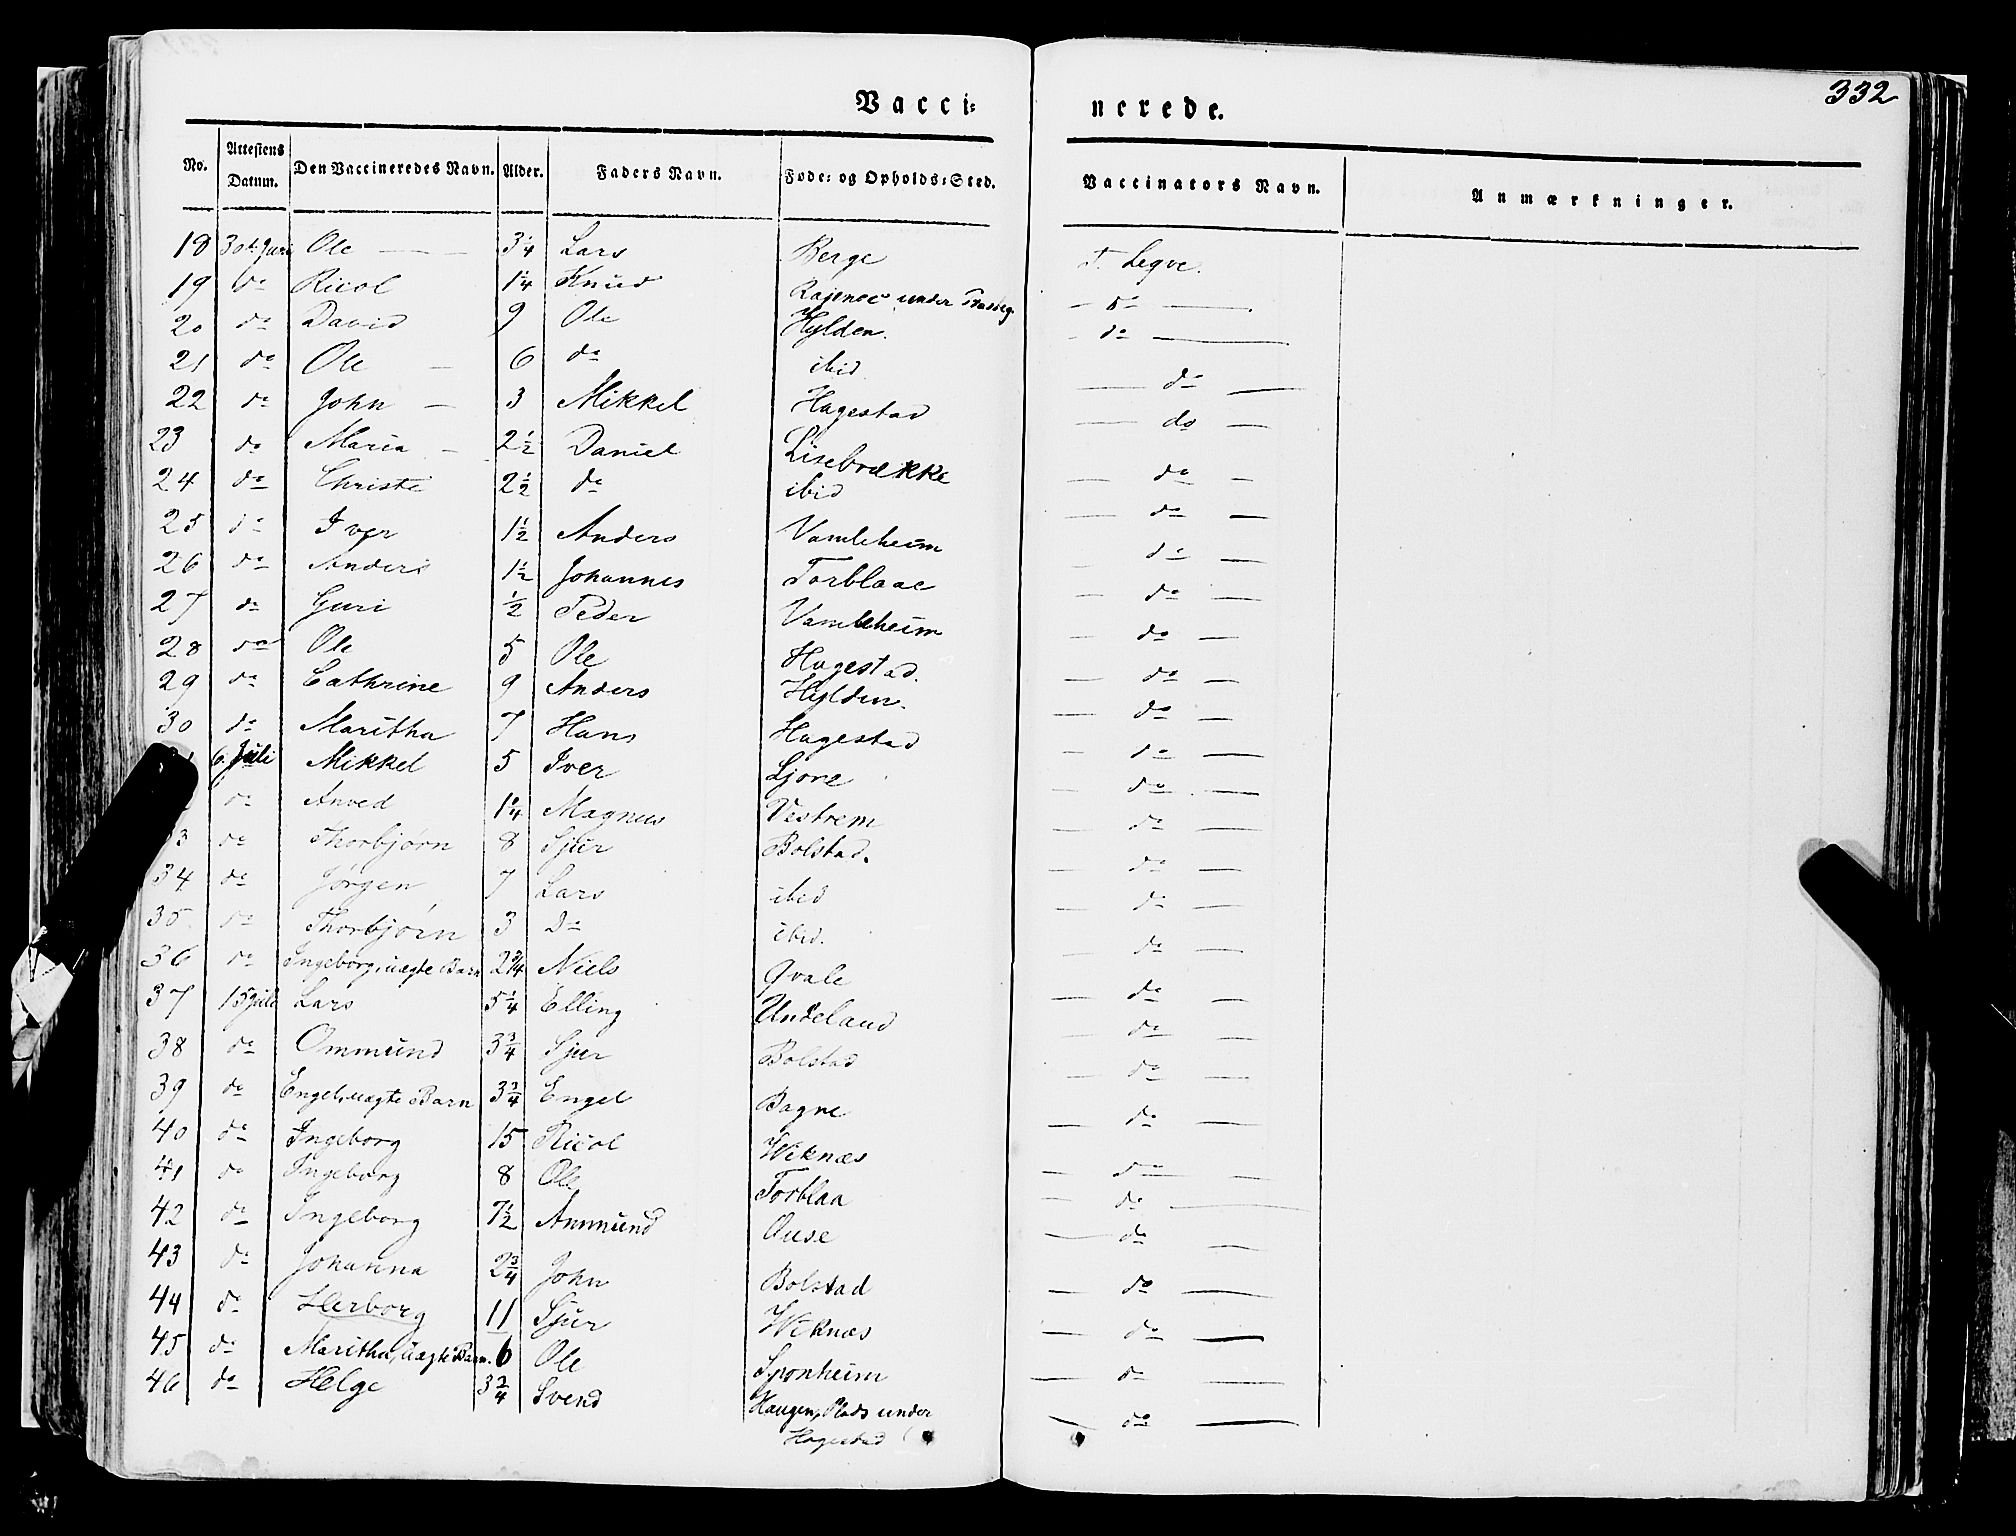 332
Vacci= nerede.
No. Attestens Datum. Den Vaccineredes Navn. Alder. Faders Navn. Føde= og Opholds=Sted. Vaccinators Navn. Anmærkninger.
18 30t Juni Ole 3¼ Lars Berge T. Legve.
19 do Ricol 1¼ Knud under do
20 do David 9 Ole Hylden. do
21 do Ole 6 do ibid do
22 do John 3 Mikkel Hagestad do
23 do Maria 2½ Daniel Lisebrække do
24 do Christi 2½ do ibid do
25 do Iver 1½ Anders Vambeheim do
26 do Anders 1½ Johannes Torblaae do
27 do Guri ½ Peder Vambeheim do
28 do Ole 5 Ole Hagestad. do
29 do Cathrine 9 Anders Hylden. do
30 do Maritha 7 Hans Hagestad do
6. Juli Mikkel 5 Iver Ljone do
do Anved 1¼ Magnus Vestrem do
3 do Thorbjørn 8 Sjur Bolstad. do
34 do Jørgen 7 Lars ibid do
35 do Thorbjørn 3 do ibid. do
36 do Ingeborg, uægte Barn 2¾ Niels Qvale do
37 15 Juli Lars 5¼ Elling Undeland do
38 do Ommund 3¾ Sjur Bolstad do
39 do Engel, uægte Barn 3¾ Engel Bagne do
40 do Ingeborg 15 Ricol Wiknæs do
41 do Ingeborg 8 Ole Torblaa do
42 do Ingeborg 7½ Ammund Ouse do
43 do Johanna 2¾ John Bolstad do
44 do Herborg 11 Sjur Wiknæs do
45 do Maritha, uægte Barn. 6 Ole Sponheim do
46 do Helge 3¾ Svend Haugen, Plads under do
Hagestad